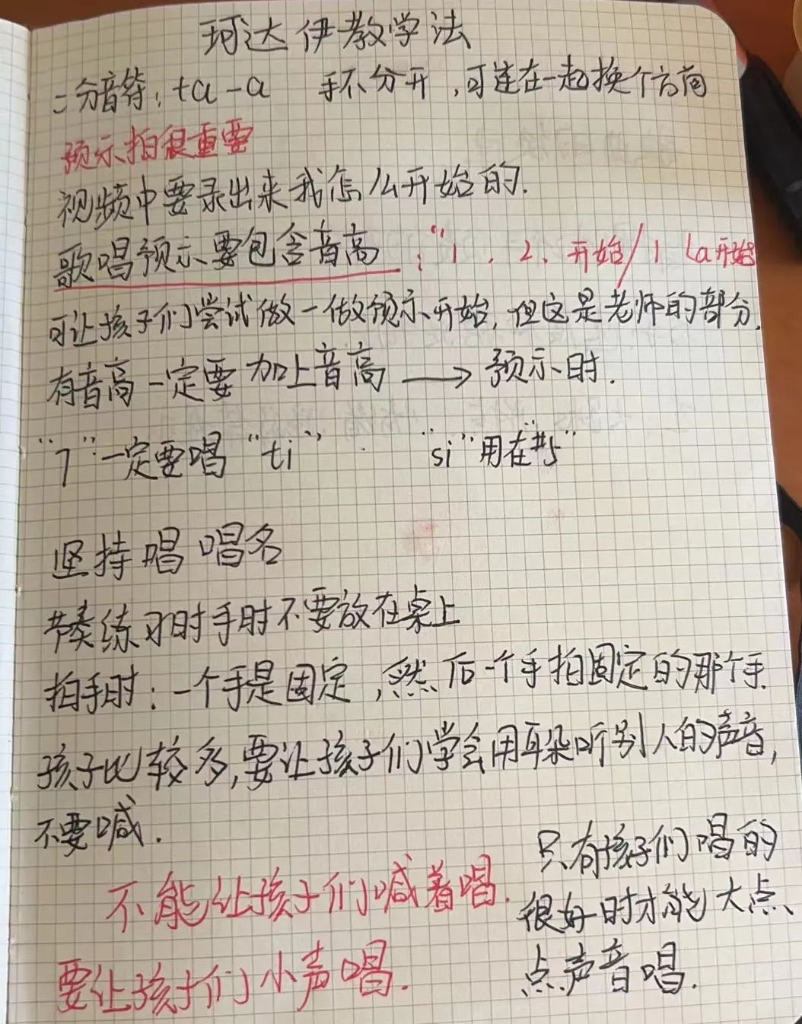 珂达伊教学法
二分音符：ta-a 手不分开，可连在一起换个方向
预示拍很重要
视频中要录出来我怎么开始的.
歌唱预示要包含音高：“1. 2. 开始/1 La开始
可让孩子们尝试做一做预示开始，但这是老师的部分.
有音高一定要加上音高 → 预示时.
“7”一定要唱“ti” “si”用在“#5”
坚持唱唱名
节奏练习时手肘不要放在桌上
拍手时：一个手是固定，然后一个手拍固定的那个手.
孩子比较多，要让孩子们学会用耳朵听别人的声音，
不要喊.
不能让孩子们喊着唱.
要让孩子们小声唱.
只有孩子们唱的
很好时才能大点、
点声音唱.